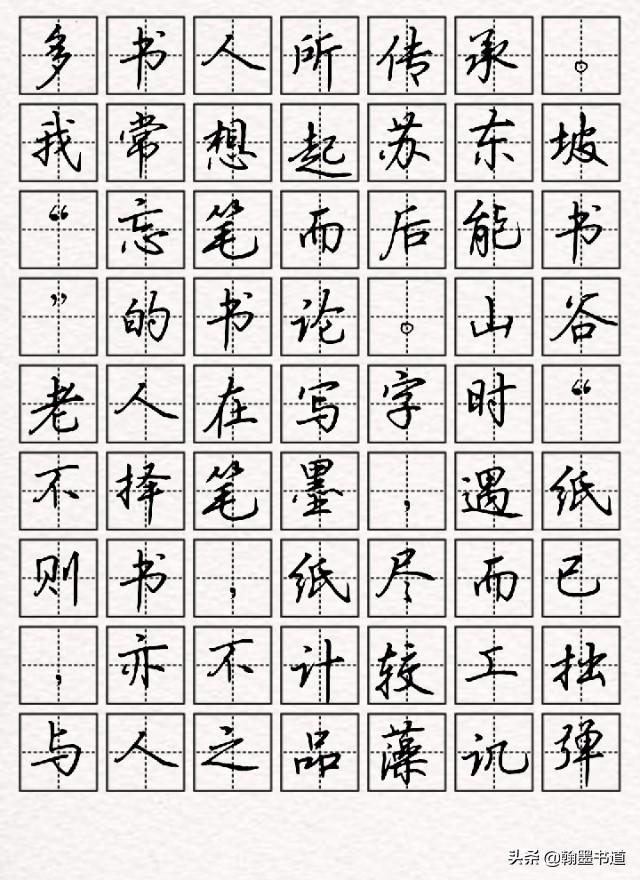 多书人所传承。
我常想起苏东坡
“忘笔而后能书
”的书论。山谷
老人在写字时“
不择笔墨，遇纸
则书，纸尽而已
，亦不计较工拙
与人之品藻讥弹
头条 @翰墨书道